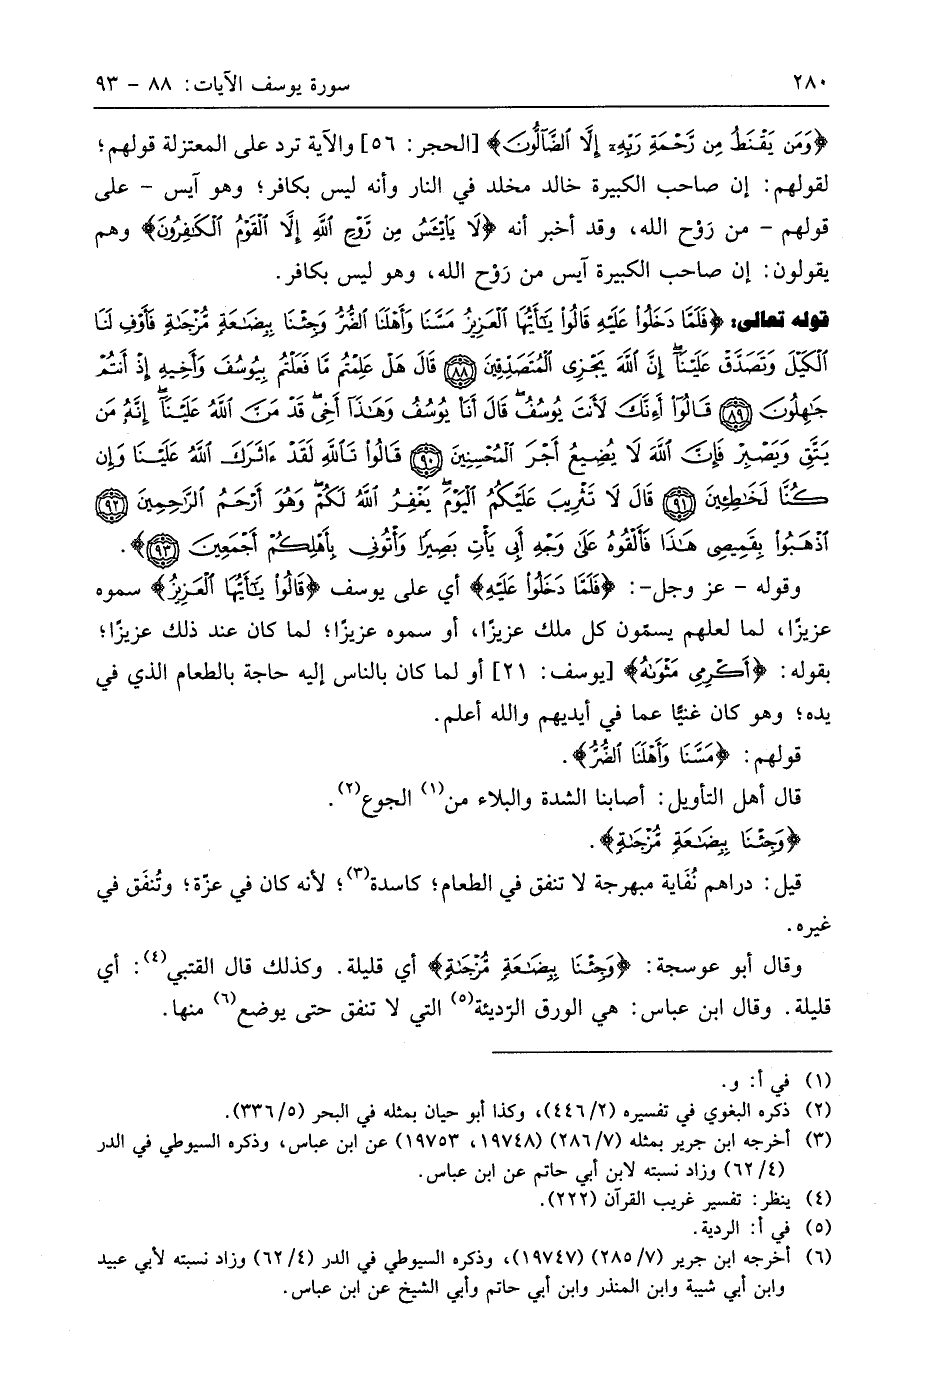 ٢٨٠ سورة يوسف الآيات: ٨٨ - ٩٣
﴿وَمَن يَقْنَطُ مِن رَّحْمَةِ رَبِّهِۦٓ إِلَّا ٱلضَّآلُّونَ﴾ [الحجر: ٥٦] والآية ترد على المعتزلة قولهم؛
لقولهم: إن صاحب الكبيرة خالد مخلد في النار وأنه ليس بكافر؛ وهو آيس - على
قولهم - من رَوْح الله، وقد أخبر أنه ﴿لَا يَاْيْـَٔسُ مِن رَّوْحِ ٱللَّهِ إِلَّا ٱلْقَوْمُ ٱلْكَٰفِرُونَ﴾ وهم
يقولون: إن صاحب الكبيرة آيس من رَوْح الله، وهو ليس بكافر.
قوله تعالى: ﴿فَلَمَّا دَخَلُوا۟ عَلَيْهِ قَالُوا۟ يَٰٓأَيُّهَا ٱلْعَزِيزُ مَسَّنَا وَأَهْلَنَا ٱلضُّرُّ وَجِئْنَا بِبِضَٰعَةٍ مُّزْجَىٰةٍ فَأَوْفِ لَنَا
ٱلْكَيْلَ وَتَصَدَّقْ عَلَيْنَآ ۖ إِنَّ ٱللَّهَ يَجْزِى ٱلْمُتَصَدِّقِينَ ٨٨ قَالَ هَلْ عَلِمْتُم مَّا فَعَلْتُم بِيُوسُفَ وَأَخِيهِ إِذْ أَنتُمْ
جَٰهِلُونَ ٨٩ قَالُوٓا۟ أَءِنَّكَ لَأَنتَ يُوسُفُ ۖ قَالَ أَنَا۠ يُوسُفُ وَهَٰذَآ أَخِى ۖ قَدْ مَنَّ ٱللَّهُ عَلَيْنَآ ۖ إِنَّهُۥ مَن
يَتَّقِ وَيَصْبِرْ فَإِنَّ ٱللَّهَ لَا يُضِيعُ أَجْرَ ٱلْمُحْسِنِينَ ٩٠ قَالُوا۟ تَٱللَّهِ لَقَدْ ءَاثَرَكَ ٱللَّهُ عَلَيْنَا وَإِن
كُنَّا لَخَٰطِـِٔينَ ٩١ قَالَ لَا تَثْرِيبَ عَلَيْكُمُ ٱلْيَوْمَ ۖ يَغْفِرُ ٱللَّهُ لَكُمْ ۖ وَهُوَ أَرْحَمُ ٱلرَّٰحِمِينَ ٩٢
ٱذْهَبُوا۟ بِقَمِيصِى هَٰذَا فَأَلْقُوهُ عَلَىٰ وَجْهِ أَبِى يَأْتِ بَصِيرًا وَأْتُونِى بِأَهْلِكُمْ أَجْمَعِينَ ٩٣﴾.
وقوله - عز وجل-: ﴿فَلَمَّا دَخَلُوا۟ عَلَيْهِ﴾ أي على يوسف ﴿قَالُوا۟ يَٰٓأَيُّهَا ٱلْعَزِيزُ﴾ سموه
عزيزًا، لما لعلهم يسمّون كل ملك عزيزًا، أو سموه عزيزًا؛ لما كان عند ذلك عزيزًا؛
بقوله: ﴿أَكْرِمِى مَثْوَىٰهُ﴾ [يوسف: ٢١] أو لما كان بالناس إليه حاجة بالطعام الذي في
يده؛ وهو كان غنيًّا عما في أيديهم والله أعلم.
قولهم: ﴿مَسَّنَا وَأَهْلَنَا ٱلضُّرُّ﴾.
قال أهل التأويل: أصابنا الشدة والبلاء من(١) الجوع(٢).
﴿وَجِئْنَا بِبِضَٰعَةٍ مُّزْجَىٰةٍ﴾.
قيل: دراهم نُفَاية مبهرجة لا تنفق في الطعام؛ كاسدة(٣)؛ لأنه كان في عزّة؛ وتُنفَق في
غيره.
وقال أبو عوسجة: ﴿وَجِئْنَا بِبِضَٰعَةٍ مُّزْجَىٰةٍ﴾ أي قليلة. وكذلك قال القتبي(٤): أي
قليلة. وقال ابن عباس: هي الورق الرّديئة(٥) التي لا تنفق حتى يوضع(٦) منها.
(١) في أ: و.
(٢) ذكره البغوي في تفسيره (٤٤٦/٢)، وكذا أبو حيان بمثله في البحر (٣٣٦/٥).
(٣) أخرجه ابن جرير بمثله (٢٨٦/٧) (١٩٧٤٨، ١٩٧٥٣) عن ابن عباس، وذكره السيوطي في الدر
(٦٢/٤) وزاد نسبته لابن أبي حاتم عن ابن عباس.
(٤) ينظر: تفسير غريب القرآن (٢٢٢).
(٥) في أ: الردية.
(٦) أخرجه ابن جرير (٢٨٥/٧) (١٩٧٤٧)، وذكره السيوطي في الدر (٦٢/٤) وزاد نسبته لأبي عبيد
وابن أبي شيبة وابن المنذر وابن أبي حاتم وأبي الشيخ عن ابن عباس.